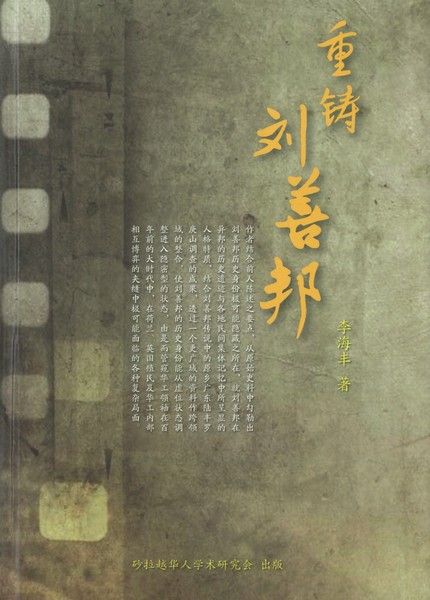 重铸
刘善邦
李海丰 著
作者结合前人陈述之要点，从原始史料中勾勒出
刘善邦历史身份极可能隐藏之所在，就刘善邦在
异邦的历史遗迹与各地民间集体记忆中所呈显的
人格特质，结合刘善邦传说中的原乡广东陆丰罗
庚山调查的成果，透过一个更广域的资料作跨领
域的整合，使刘善邦的历史身份能从虚位状态调
整进入隐密型的状态，由是而管窥华工领袖在百
年前的大时代中，在荷兰、英国殖民及华工内部
相互博弈的夹缝中极可能面临的各种复杂局面
砂拉越华人学术研究会 出版